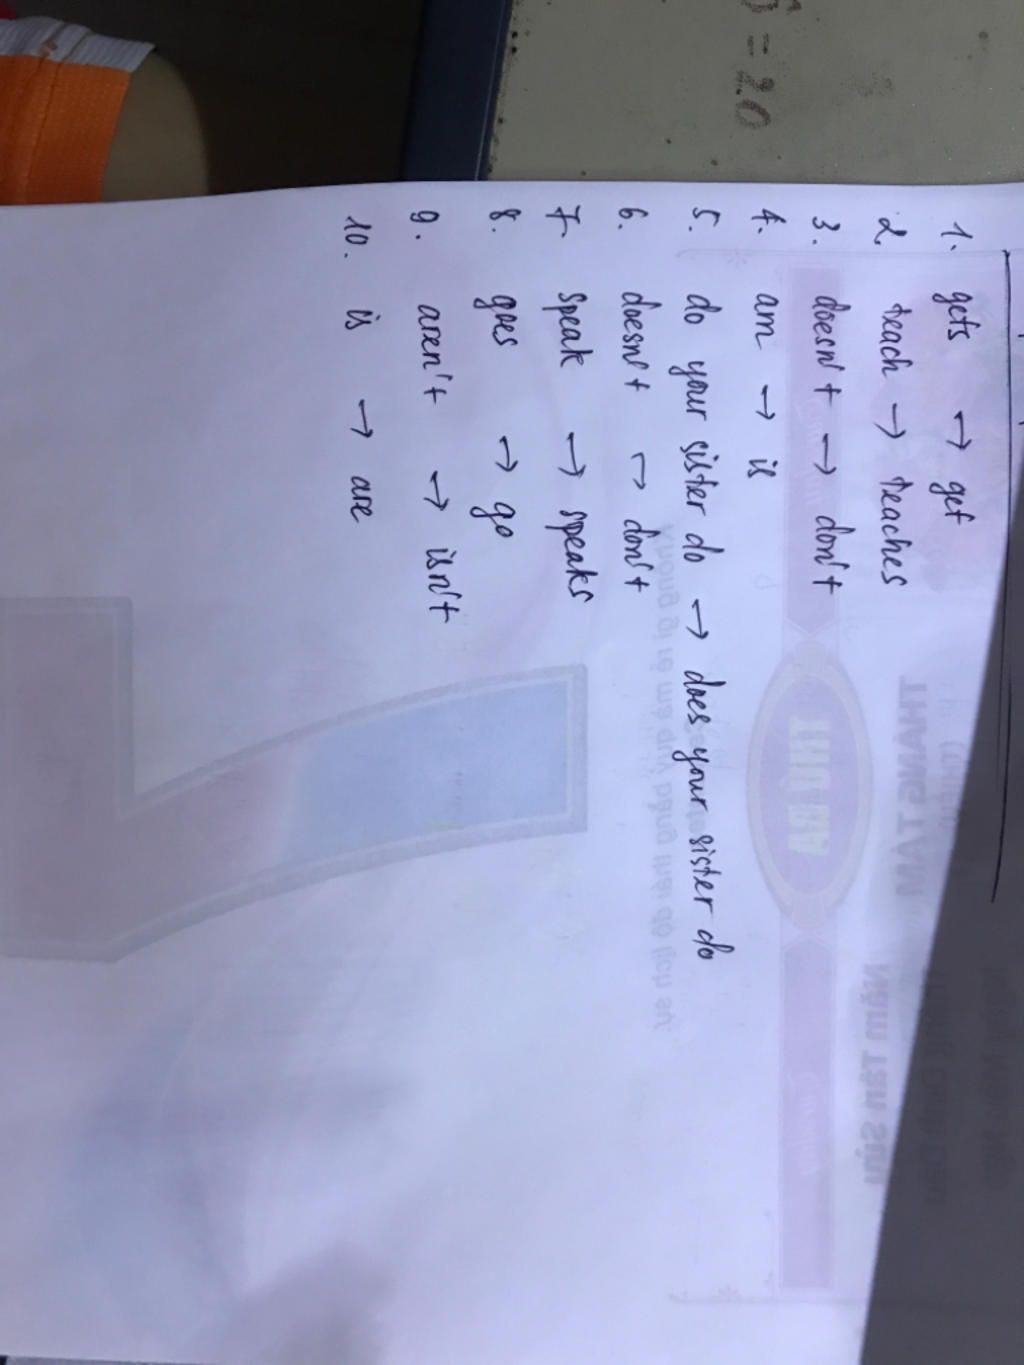 5 = 20
1. gets → get
2. teach → teaches
3. doesn't → don't
4. am → is
5. do your sister do → does your sister do
6. doesn't → don't
7. speak → speaks
8. goes → go
9. aren't → isn't
10. is → are